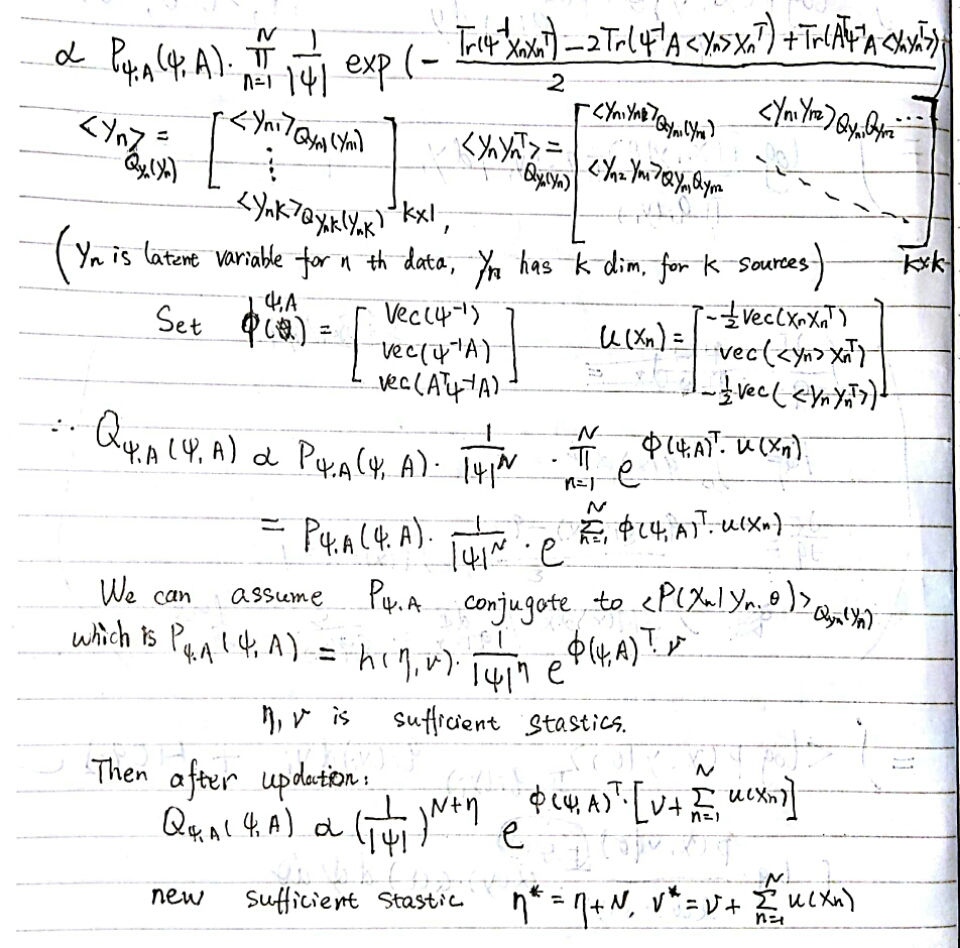 ∝ P_{Ψ,A}(Ψ, A) · ∏_{n=1}^{N} 1/|Ψ| exp(- (Tr(Ψ^{-1} x_n x_n^T) - 2Tr(Ψ^{-1} A <y_n> x_n^T) + Tr(A^T Ψ^{-1} A <y_n y_n^T>))/2
<y_n>_{Q_{y_n}(y_n)} = [<y_{n1}>_{Q_{yn1}(y_{n1})} ⋮ <y_{nk}>_{Q_{ynk}(y_{nk})}]_{k×1}, <y_n y_n^T>_{Q_{yn}(y_n)} = [<y_{n1} y_{n1}>_{Q_{yn1}(y_{n1})} <y_{n1} y_{n2}>_{Q_{yn1} Q_{yn2}} ⋯ <y_{n2} y_{n1}>_{Q_{yn1} Q_{yn2}} ⋱]_{k×k}
(y_n is latent variable for n th data, y_n has k dim, for k sources)
Set ϕ(Ψ,A) = [vec(Ψ^{-1}) vec(Ψ^{-1}A) vec(A^TΨ^{-1}A)] u(x_n) = [-1/2 vec(x_n x_n^T) vec(<y_n> x_n^T) -1/2 vec(<y_n y_n^T>)]
∴ Q_{Ψ,A}(Ψ, A) ∝ P_{Ψ,A}(Ψ, A) · 1/|Ψ|^N · ∏_{n=1}^{N} e^{ϕ(Ψ,A)^T · u(x_n)}
= P_{Ψ,A}(Ψ, A) · 1/|Ψ|^N · e^{∑_{n=1}^{N} ϕ(Ψ,A)^T · u(x_n)}
We can assume P_{Ψ,A} conjugate to <P(x_n|y_n, θ)>_{Q_{yn}(y_n)}
which is P_{Ψ,A}(Ψ, A) = h(η,ν) · 1/|Ψ|^η e^{ϕ(Ψ,A)^T · ν}
η, ν is sufficient stastics.
Then after updation:
Q_{Ψ,A}(Ψ, A) ∝ (1/|Ψ|)^{N+η} e^{ϕ(Ψ,A)^T · [ν + ∑_{n=1}^{N} u(x_n)]}
new sufficient stastic η* = η+N, ν* = ν + ∑_{n=1}^{N} u(x_n)